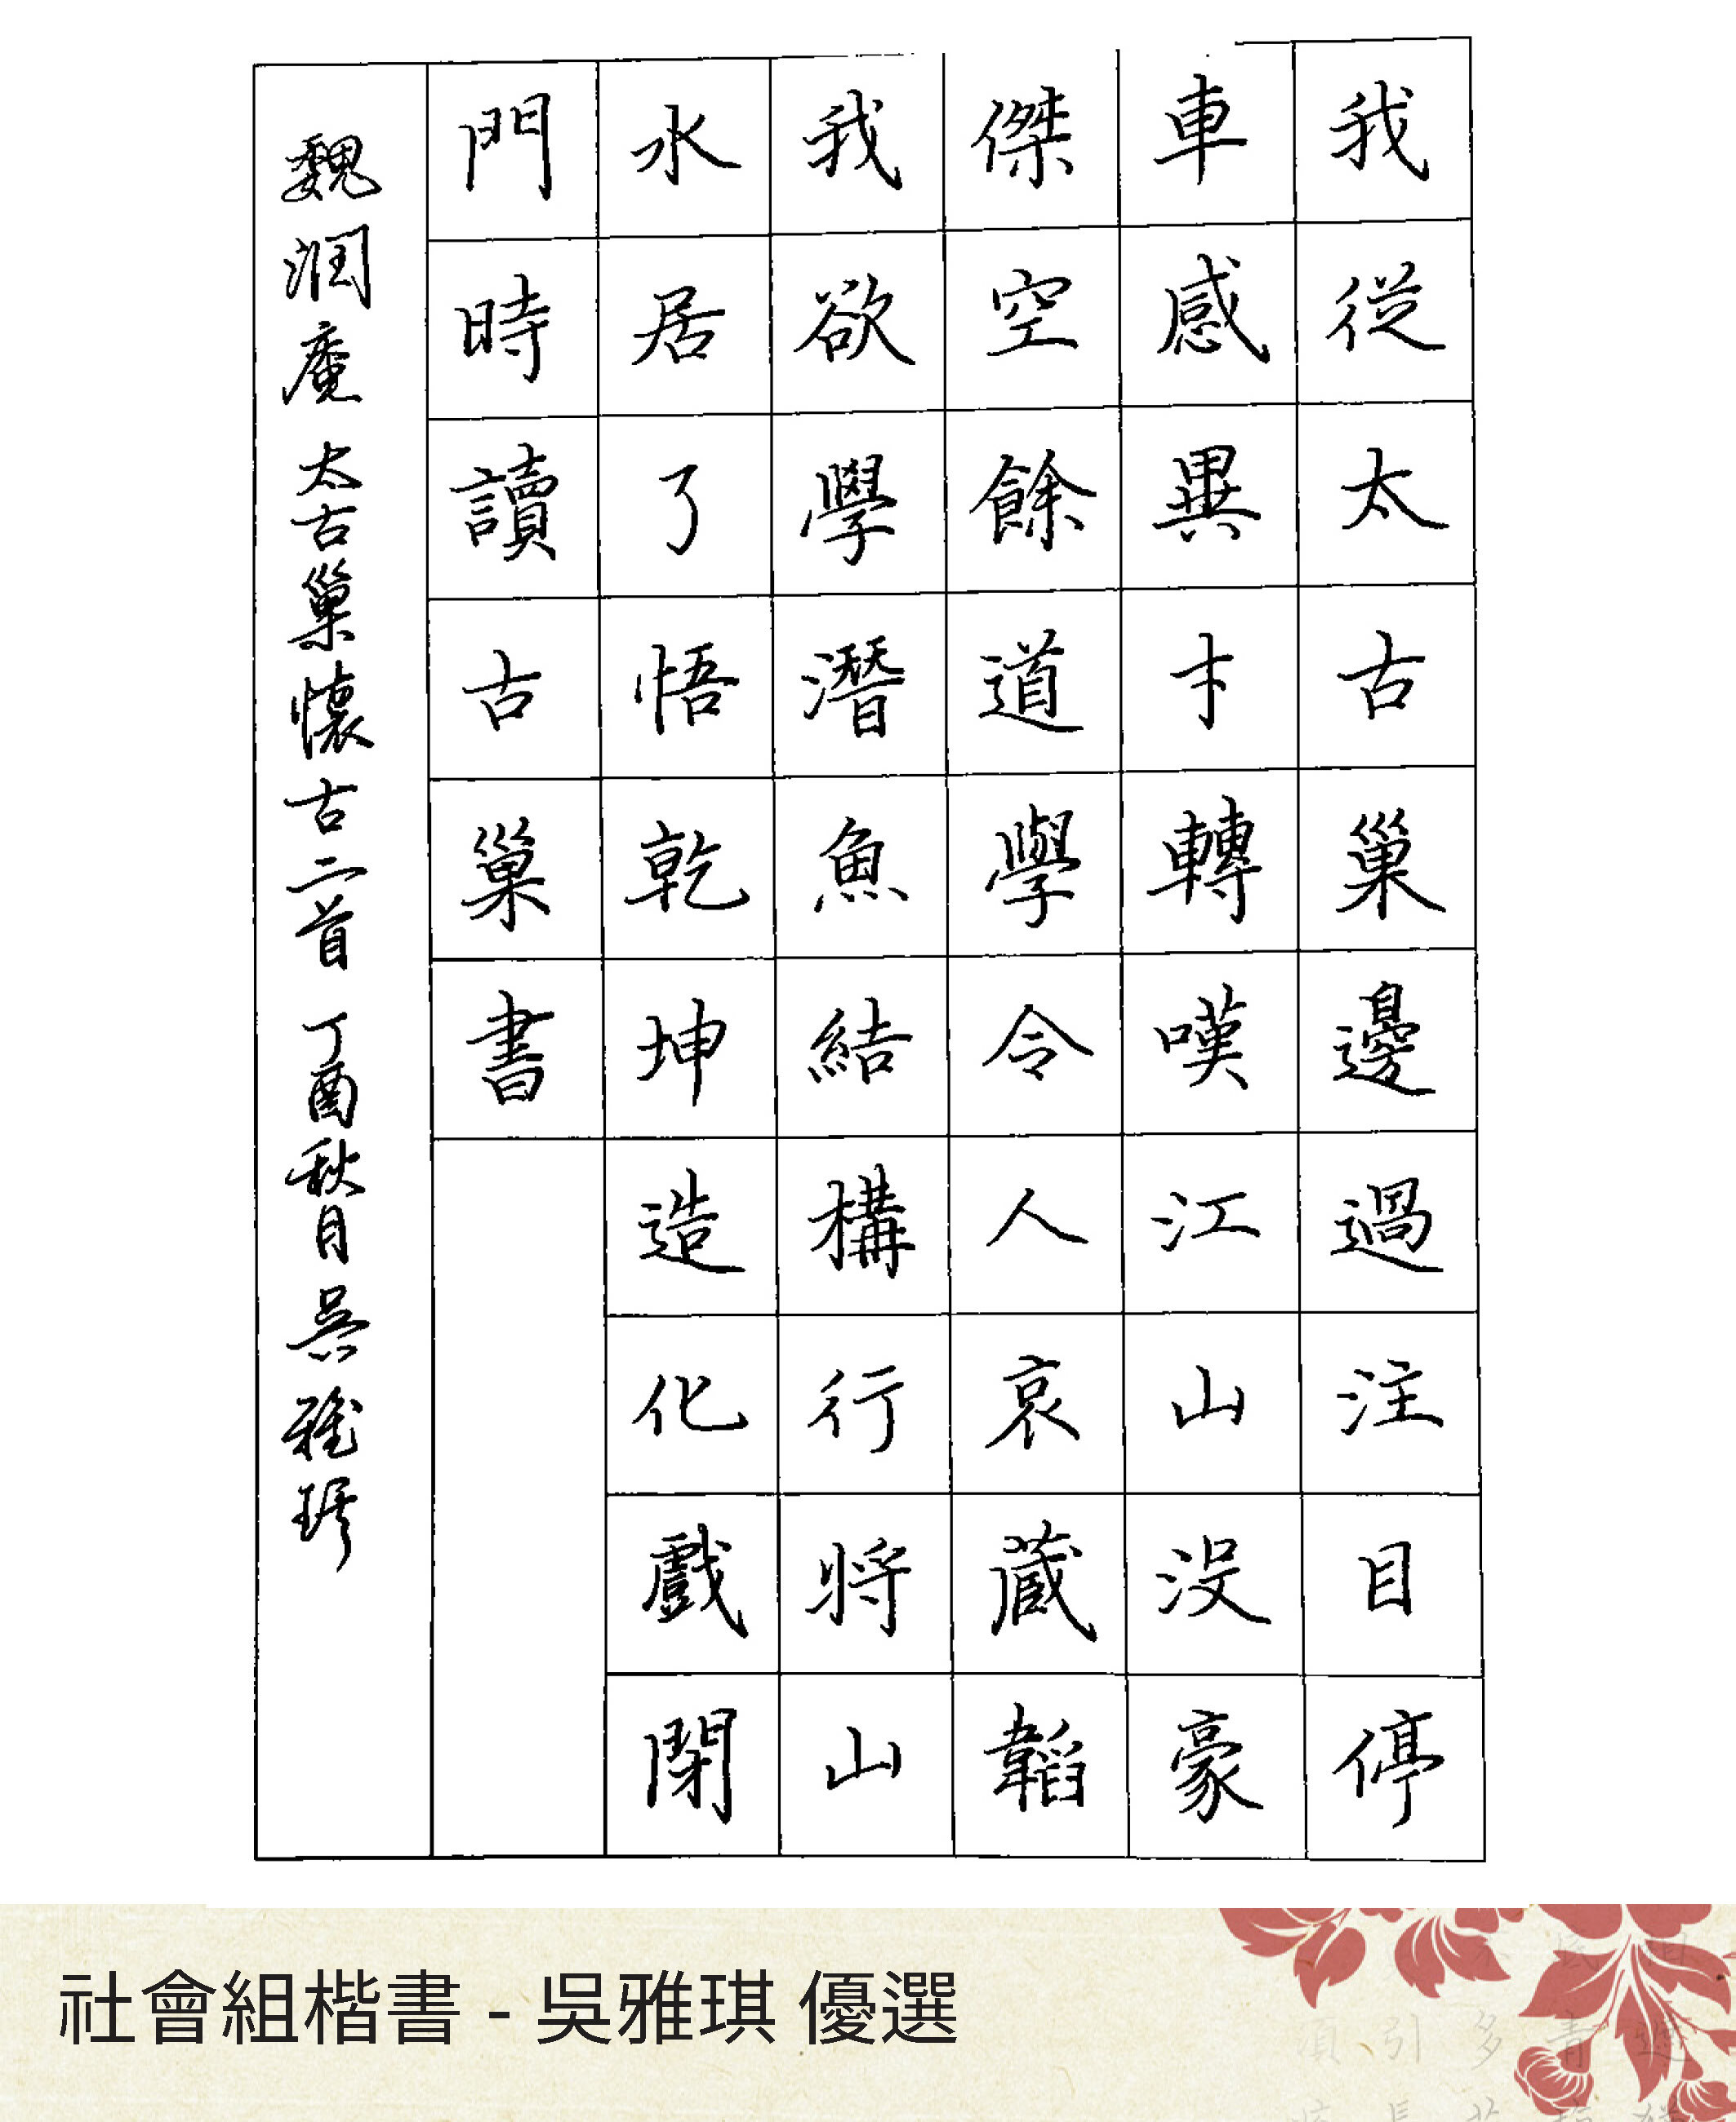 我從太古巢邊過注目停
車感異才轉嘆江山沒豪
傑空餘道學令人哀蔵韜
我欲學潛魚結構行將山
水居了悟乾坤造化戲閉
門時讀古巢書
魏润庵 太古巢懷古二首 丁酉秋月 吳雅琪
社會組楷書 - 吳雅琪 優選